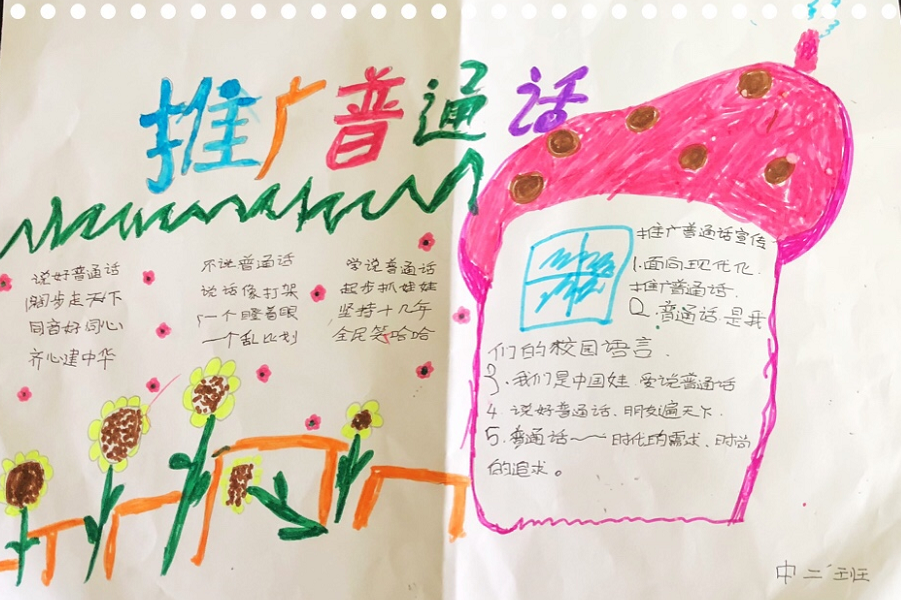 推广普通话
说好普通话
阔步走天下
同音好同心
齐心建中华
不说普通话
说话像打架
一个瞪着眼
一个乱比划
学说普通话
起步抓娃娃
坚持十几年
全民笑哈哈
推广普通话宣传
1.面向现代化.
推广普通话.
2.普通话是我
们的校园语言.
3.我们是中国娃 爱说普通话
4.说好普通话、朋友遍天下.
5.普通话——时代的需求、时尚
的追求。
中二班